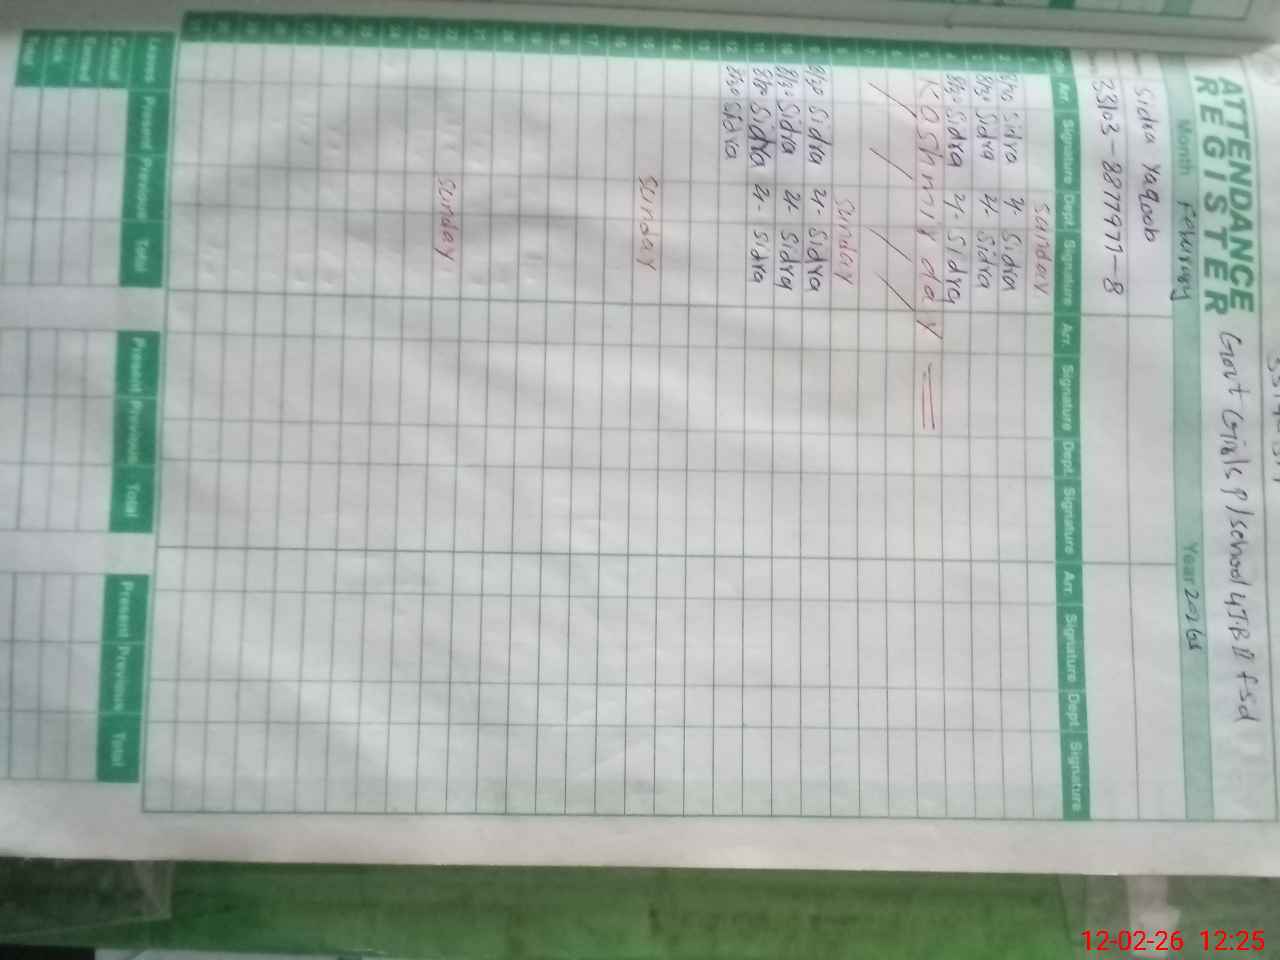 ATTENDANCE
REGISTER
Govt Girls P/school 4J.B II fsd
Month Febuary Year 2026
Sidra Yaqoob
33103-8877977-8
Arr. Signature Dept. Signature Arr. Signature Dept. Signature Arr. Signature Dept. Signature
1 Sunday
2 8/30 Sidra 2/- Sidra
3 8/30 Sidra 2/- Sidra
4 8/30 Sidra 2/- Sidra
5 Kashmir day
6
7
8 Sunday
9 8/30 Sidra 2/- Sidra
10 8/30 Sidra 2/- Sidra
11 8/30 Sidra 2/- Sidra
12 8/30 Sidra
13
14
15 Sunday
16
17
18
19
20
21
22 Sunday
23
24
25
26
27
28
29
30
31
Leaves Present Previous Total Present Previous Total Present Previous Total
Casual
Earned
Sick
Total
12-02-26 12:25